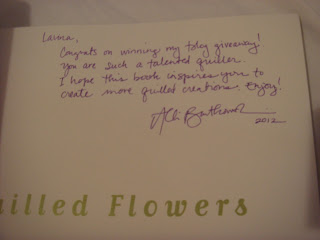 Congrats on winning my blog giveaway!
You are such a talented quiller.
I hope this book inspires you to
create more quilled creations. Enjoy!
2012
uilled Flowers